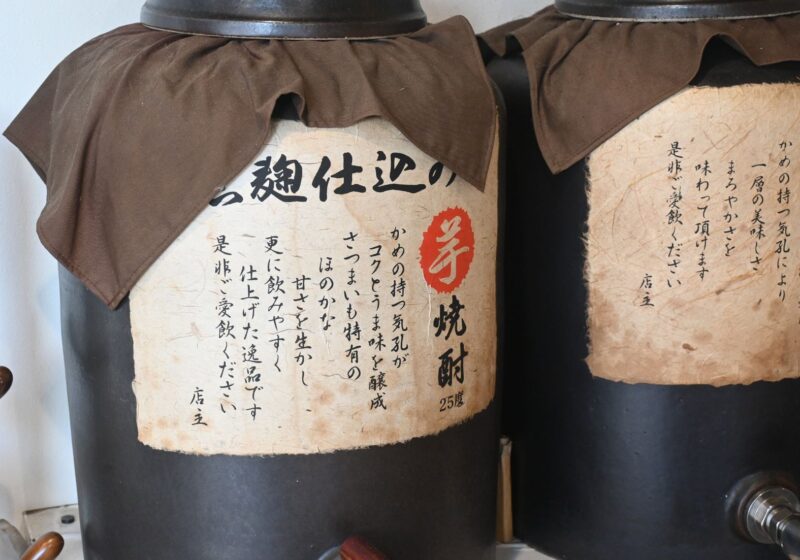 麹仕込み
芋焼酎
25度
かめの持つ気孔が
コクとうま味を醸成
さつまいも特有の
ほのかな
甘さを生かし
更に飲みやすく
仕上げた逸品です
是非ご愛飲ください
店主
かめの持つ気孔により
一層の美味しさ
まろやかさを
味わって頂けます
是非ご愛飲ください
店主